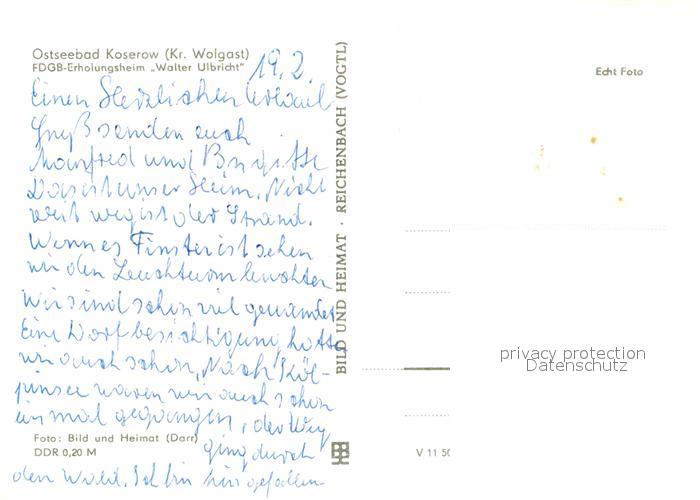 Ostseebad Koserow (Kr. Wolgast)
FDGB-Erholungsheim „Walter Ulbricht"
19.2.
Einen Herzlichen Urlaub
Gruß senden euch
Manfred und Brigitte
Das ist unser Heim. Nicht
weit weg ist der Strand.
Wenn es Finster ist sehen
wir den Leuchturm leuchten
Wir sind schon viel gewandet
Eine Dorfbesichtigung hatte
wir auch schon, Nach Köl-
pinsee waren wir auch schon
ein mal gegangen, der Weg
ging durch
den Wald. Ich bin hin gefallen
Foto: Bild und Heimat (Darr)
DDR 0,20 M
BILD UND HEIMAT · REICHENBACH (VOGTL)
Echt Foto
privacy protection
Datenschutz
V 11 50